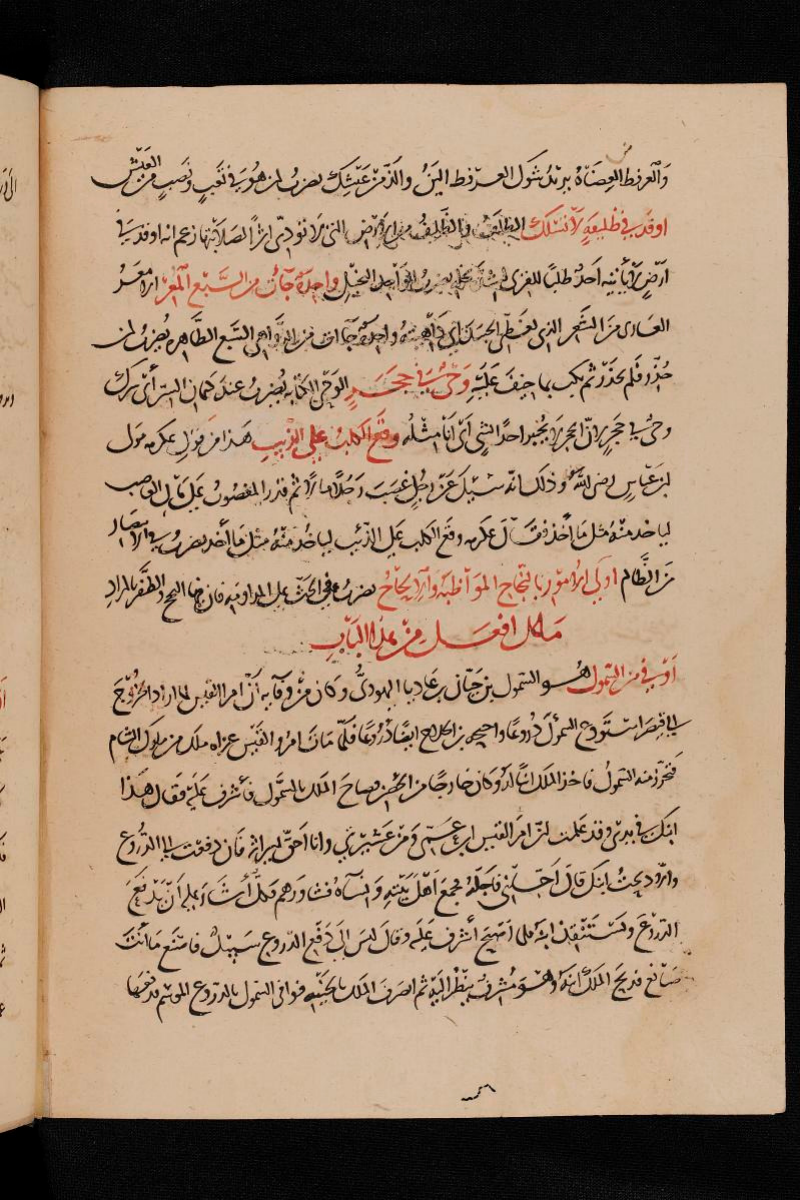 والعرفط العضاه يريد شول العرفط الين والذ من عيشك يضرب لمن هو في تعب ونصب من العيش
اوقد في ظليفة لا تسلك الظلف والظليف من الارض التى لا تودى اثرا لصلابتها زعم انه اوقد في
ارض لا ياتيه احد طلبا للقرى يضرب للواجد البخيل واحدة جآت من السبع المعر الامعر
العارى من الشعر الذى يغطى الجسد اى داهية واحدة جات من الدواهى السبع الظاهره يضرب لمن
حذر فلم يحذر ثم نكب بما خيف عليه وحى فى حجر الوحى الكتابه يضرب عند كتمان السر أى سرك
وحى فى حجر لان الحجر لا يخبر احدا بشى أى انا مثله وقع الكلب على الذيب هذا من قول عكرمه مولى
ابن عباس رضى الله وذلك انه سيل عن رجل غصب رجلا مالا ثم قدر المغصوب على مال الغاصب
لياخد منه مثل ما أخذ فقال عكرمه وقع الكلب على الذئب لياخد منه مثل ما أخد يضرب فى الانتصار
من الظالم اولى الامور بالنجاح المواظبة والالحاح يضرب فى الحث على المداومه فان فيها النجح والظفر بالمراد
ما على افعل من هذا الباب
أوفى من السمول هو السمول بن حيان بن عاديا اليهودى وكان من وفآيه أن امرا القيس لما اراد الخروج
الى قيصر استودع السمول دروعا واحيحه بن الجلاح ايضا دروعا فلما مات امرؤ القيس غزاه ملك من ملوك الشام
فتحرز منه السمول فاخذ الملك ابنا له وكان خارجا من الحصن وصاح الملك بالسمول فأشرف عليه فقال هذا
ابنك فى يدى وقد علمت ان امرا القيس ابن عمى ومن عشيرتى وانا احق بميراثه فان دفعت الى الدروع
والا ذبحت ابنك قال أجلنى فاجله فجمع أهل بيته ونسآه فشاورهم فكل أشار عليه أن يدفع
الدروع ويستنقذ ابنه فلما أصبح أشرف عليه وقال ليس الى دفع الدروع سبيل فاصنع ما أنت
صانع فذبح الملك ابنه وهو مشرف ينظر اليه ثم انصرف الملك بالخيبه فوافى السمول بالدروع الموسم فدفعها